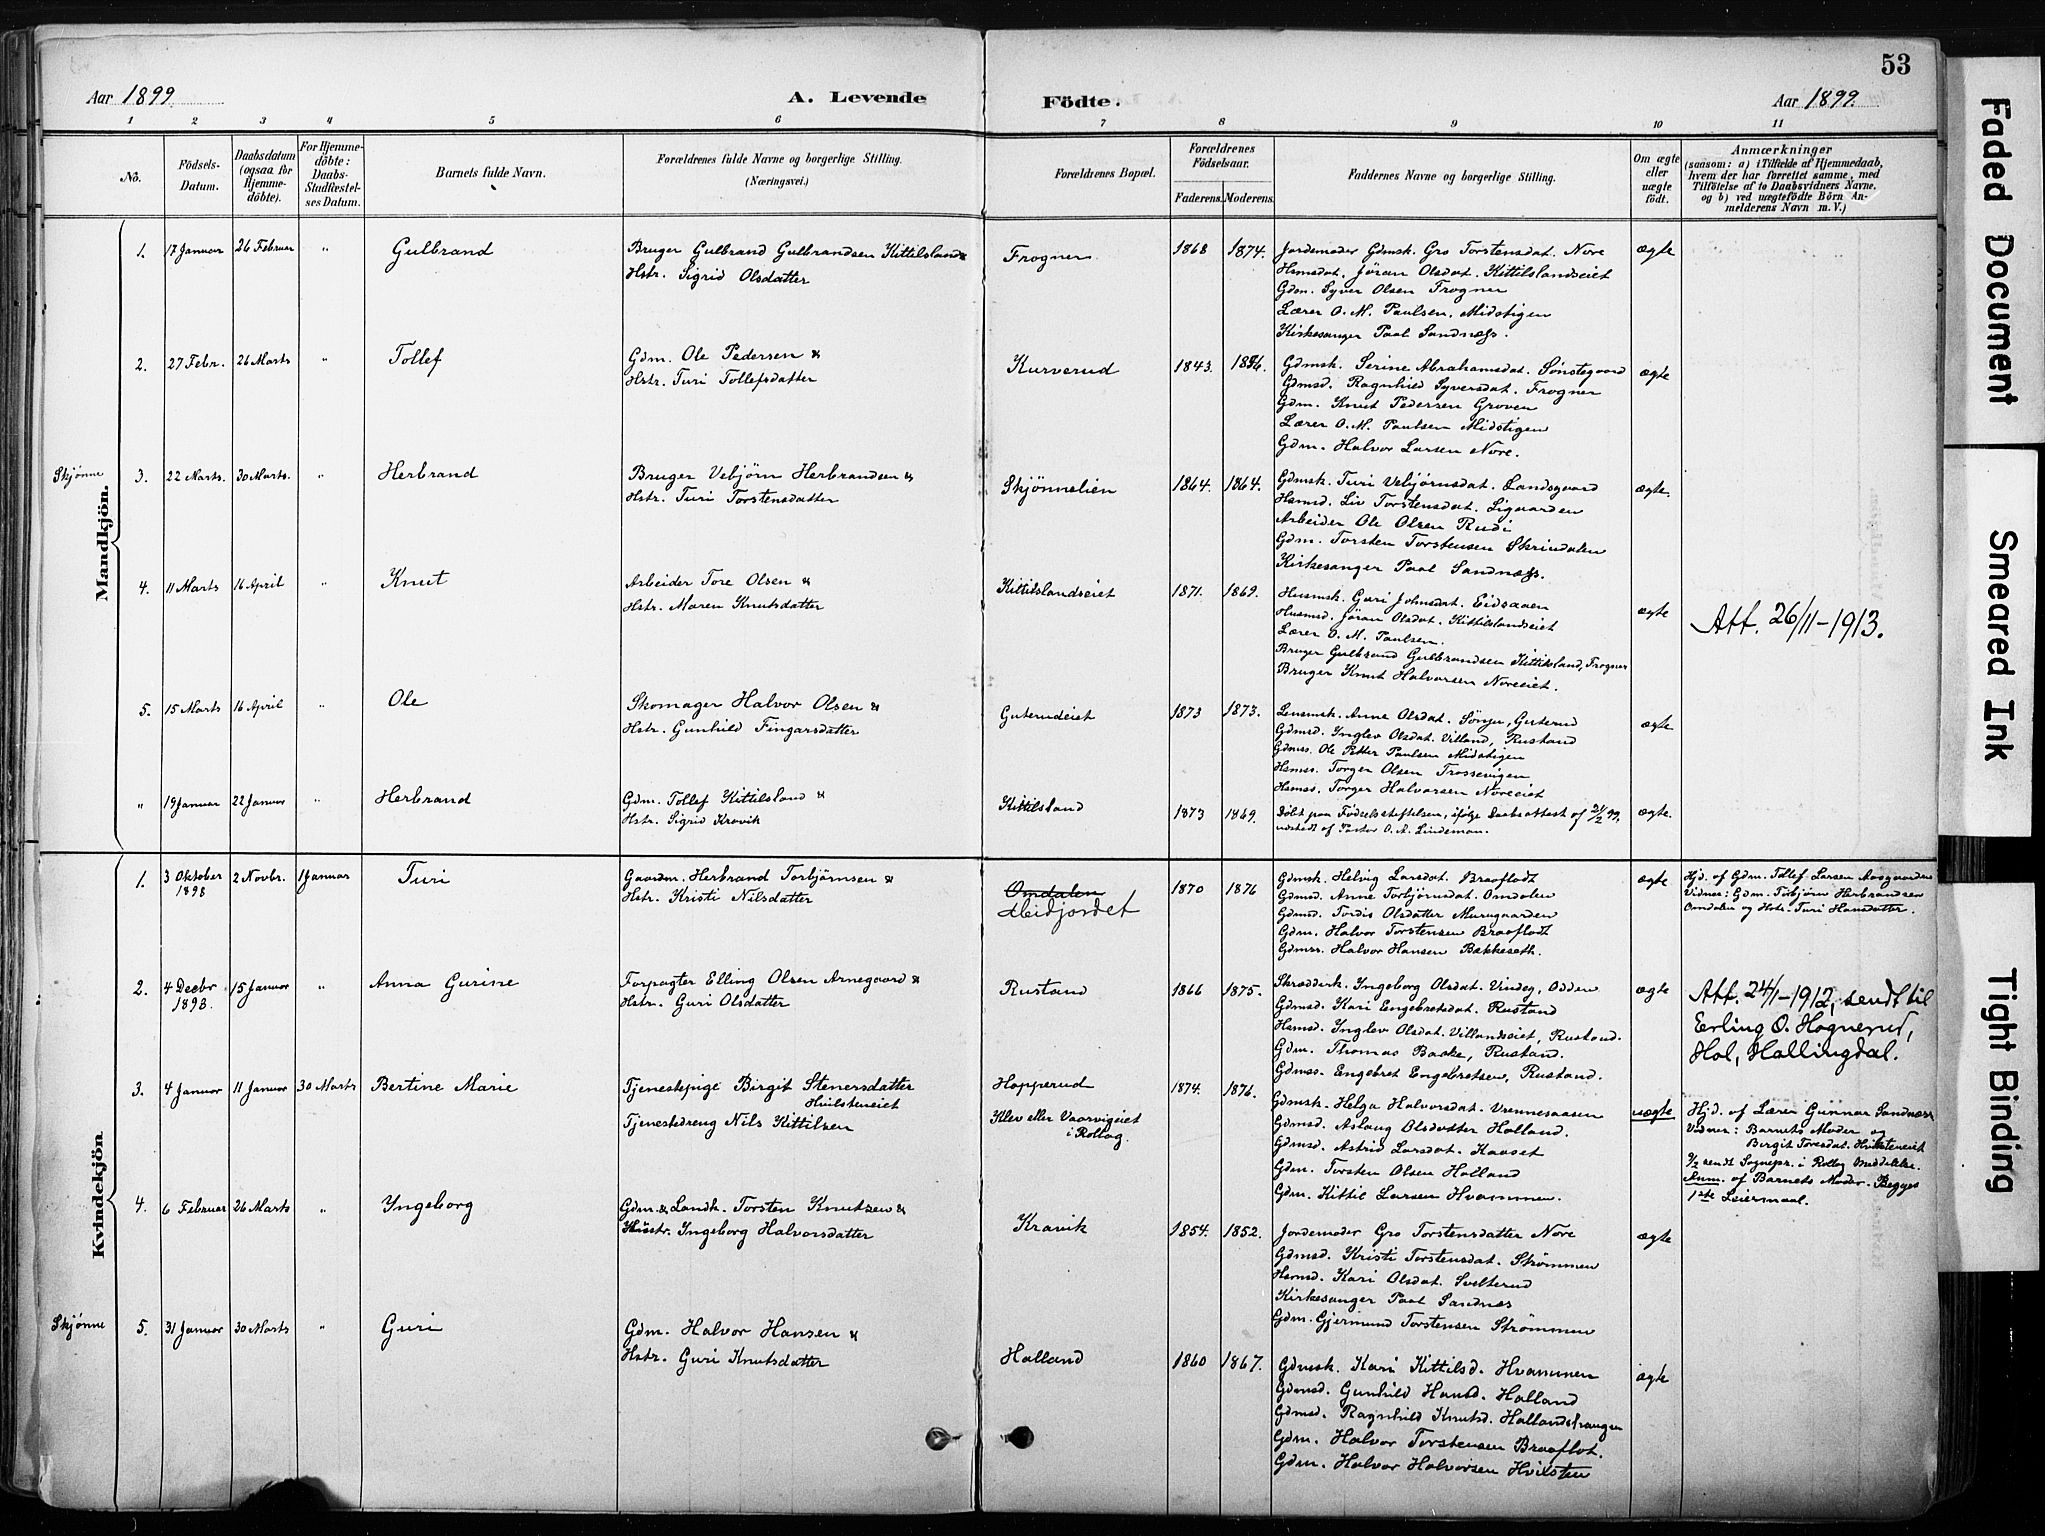 53
Aar 1899. A. Levende Födte. Aar 1899.
1 2 3 4 5 6 7 8 9 10 11
No.
Födsels-Datum.
Daabsdatum (ogsaa for Hjemmedöbte).
For Hjemmedöbte: Daabs-Stadfæstelses Datum.
Barnets fulde Navn.
Forældrenes fulde Navne og borgerlige Stilling.
(Næringsvei.)
Forældrenes Bopæl.
Forældrenes Födselsaar.
Faderens. Moderens.
Faddernes Navne og borgerlige Stilling.
Om ægte eller uægte født.
Anmærkninger
(saasom: a) i Tilfælde af Hjemmedaab,
hvem der har forrettet samme, med
Tilföielse af to Daabsvidners Navne,
og b) ved uægtefödte Börn Anmelderens Navn m. V.)
Mandkjön.
1. 17 Januar 26 Februar " Gulbrand
Bruger Gulbrand Gulbrandsen Kittilsland &
Hstr. Sigrid Olsdatter
Frogner 1868 1874.
Jordemoder Gdmsk. Gro Torstensdat. Nore
Hsmsdat. Jöran Olsdat. Kittilslandseiet
Gdm. Syver Olsen Frogner
Lærer O. M. Paulsen, Midstigen
Kirkesanger Paal Sandnæss.
ægte
2. 27 Febr. 26 Marts " Tollef
Gdm. Ole Pedersen &
Hstr. Turi Tollefsdatter
Kurverud 1843. 1856.
Gdmsk. Serine Abrahamsdat. Sønstegaard
Gdmsd. Ragnhild Syversdat. Frogner
Gdm. Knut Pedersen Groven
Lærer O. M. Paulsen Midstigen
Gdm. Halvor Larsen Nore.
ægte
Skjønne
3. 22 Marts. 30 Marts. " Herbrand
Bruger Vebjörn Herbrandsen &
Hstr. Turi Torstensdatter
Skjönnelien 1864. 1864.
Gdmsk. Turi Vebjörnsdat. Landsgaard
Hsmsd. Liv Torstensdat. Sigaarden
Arbeider Ole Olsen Rudi
Gdm. Torsten Torstensen Skrindalen
Kirkesanger Paal Sandnæss.
ægte.
4. 11 Marts 16 April " Knut
Arbeider Tore Olsen &
Hstr. Maren Knutsdatter
Kittilslandseiet 1871. 1869.
Husmsk. Guri Johnsdat. Eidsaaen
Husmsd. Jöran Olsdat. Kittilslandseiet
Lærer O. M. Paulsen.
Bruger Gulbrand Gulbrandsen Kittilsland, Frogner
Bruger Knut Halvorsen Noreeiet.
ægte
Att. 26/11-1913.
5. 15 Marts 16 April " Ole
Skomager Halvor Olsen &
Hstr. Gunhild Fingarsdatter
Guterudeiet 1873 1873.
Lensmsk. Anne Olsdat. Sönju, Guterud
Gdmsd. Inglev Olsdat. Villand, Rustand
Gdmss. Ole Petter Paulsen Midstigen
Hsmss. Torger Olsen Trossevigen
Hsmss. Torger Halvorsen Noreeiet
ægte
" 19 Januar 22 Januar " Herbrand
Gdm. Tollef Kittilsland &
Hstr. Sigrid Kravik
Kittilsland 1873 1869.
Döbt paa Fødselsstiftelsen, ifølge Daabsattest af 24/2 99.
udstedt af Pastor O. A. Lindeman.
ægte.
Kvindekjön
1. 3 Oktober 1898 2 Novbr. 1 Januar Turi
Gaardm. Herbrand Torbjörnsen &
Hstr. Kristi Nilsdatter
Omdalen
Heidjordet
1870 1876
Gdmsk. Helvig Larsdat. Braaflodt
Gdmsd. Anne Torbjörnsdat. Omdalen
Gdmsd. Tordis Olsdatter Murugaarden
Gdm. Halvor Torstensen Braaflodt
Gdmss. Halvor Hansen Bakkeseth.
ægte
Hjd. af Gdm. Tollef Larsen Aasgaarden
Vidner: Gdm. Torbjörn Herbrandsen
Omdalen og Hstr. Turi Hansdatter.
2. 4 Decbr 1898. 15 Januar " Anna Gurine
Forpagter Elling Olsen Arnegaard &
Hstr. Guri Olsdatter
Rustand 1866 1875.
Skrædderk. Ingeborg Olsdat. Vindeg, Odden
Gdmsd. Kari Engebretsdat. Rustand
Hsmsd. Inglev Olsdat. Villandseiet, Rustand.
Gdm. Thomas Bakke, Rustand.
Gdmss. Engebret Engebretsen, Rustand.
ægte
Att. 24/1-1912, sendt til
Erling O. Hagnerud,
Hol, Hallingdal.
3. 4 Januar 11 Januar 30 Marts Bertine Marie
Tjenestepige Birgit Stenersdatter
Hvilsteneiet
Tjenestedreng Nils Kittilsen
Hopperud
Klev eller Vaarvigeiet
i Rollag.
1874. 1876.
Gdmsk. Helga Halvorsdat. Vrennesaasen
Gdmsd. Aslaug Olsdatter Holland.
Gdmsd. Astrid Larsdat. Kaaset
Gdm. Torsten Olsen Holland
Gdm. Kittil Larsen Hvammen.
uægte
Hjd. af Lærer Gunnar Sandnæss
Vidner: Barnets Moder og
Birgit Toresdat. Hvilsteneiet
9/2 sendt Sognepr. i Rollag Meddelelse.
Anm. af Barnets Moder. Begges
1ste Leiermaal.
4. 6 Februar 26 Marts " Ingeborg
Gdm. & Landh. Torsten Knutsen &
Hustr. Ingeborg Halvorsdatter
Kravik 1854. 1852.
Jordemoder Gro Torstensdatter Nore
Gdmsd. Kristi Torstensdat. Strømmen
Hsmsd. Kari Olsdat. Svelterud
Kirkesanger Paal Sandnes
Gdm. Gjermund Torstensen Strømmen
ægte
Skjönne
5. 31 Januar 30 Marts " Guri
Gdm. Halvor Hansen &
Hstr. Guri Knutsdatter
Holland 1860 1867.
Gdmsk. Kari Kittilsd. Hvammen
Gdmsd. Gunhild Hansd. Holland
Gdmsd. Ragnhild Knutsd. Hallandshaugen
Gdm. Halvor Torstensen Braaflot.
Gdm. Halvor Halvorsen Hvilsten
ægte
Faded Document
Smeared Ink
Tight Binding